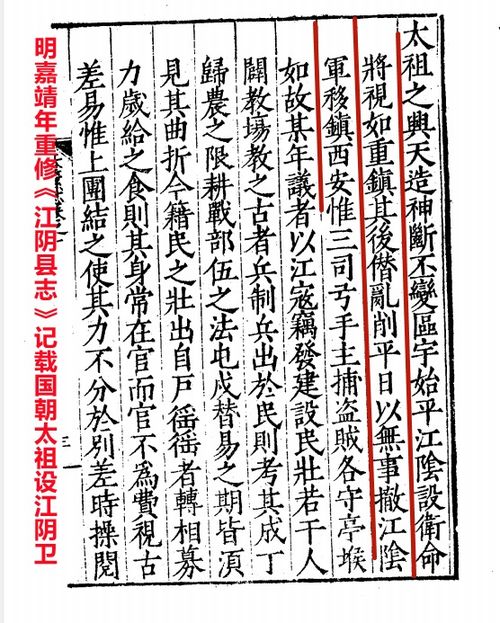 太祖之興天造神斷丕變區宇始平江陰設衛命
將視如重鎮其後僭亂削平日以無事撤江陰
軍移鎮西安惟三司弓手主捕盗賊各守亭堠
如故某年議者以江寇竊發建設民壯若干人
闢教場教之古者兵制兵出於民則考其成丁
歸農之限耕戰部伍之法屯戍替易之期皆湏
見其曲折今籍民之壯出自戸徭徭者轉相募
力歲給之食則其身常在官而官不爲費視古
差易惟上團結之使其力不分於別差時操閱
三
明嘉靖年重修《江阴县志》记载国朝太祖设江阴卫